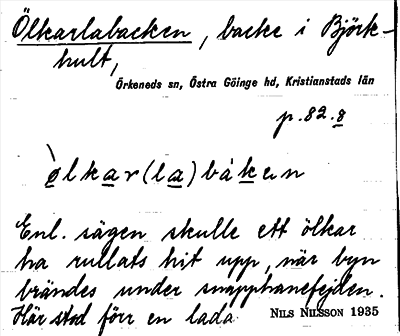 Ölkarlabacken, backe i Björk-
hult,
Örkeneds sn, Östra Göinge hd, Kristianstads län
p. 82. 8
ȯlkar(la)båken
Enl. sägen skulle ett ölkar
ha rullats hit upp, när byn
brändes under snapphanefejden.
Här stod förr en lada.
NILS NILSSON 1935